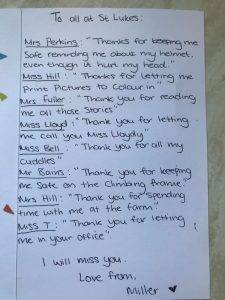 To all at St Lukes:
Mrs Perkins: "Thanks for keeping me
Safe reminding me about my helmet,
even though it hurt my head."
Miss Hill: "Thanks for letting me
Print Pictures to Colour in"
Mrs Fuller: "Thank you for reading
me all those Stories"
Miss Lloyd: "Thank you for letting
me call you Miss Lloydy"
Miss Bell: "Thank you for all my
cuddles"
Mr Bains: "Thank you for keeping
me Safe on the Climbing frame."
Mrs Hill: "Thank you for spending
time with me at the farm"
Miss T: "Thank you for letting
me in your office".
I will miss you.
Love from,
Miller